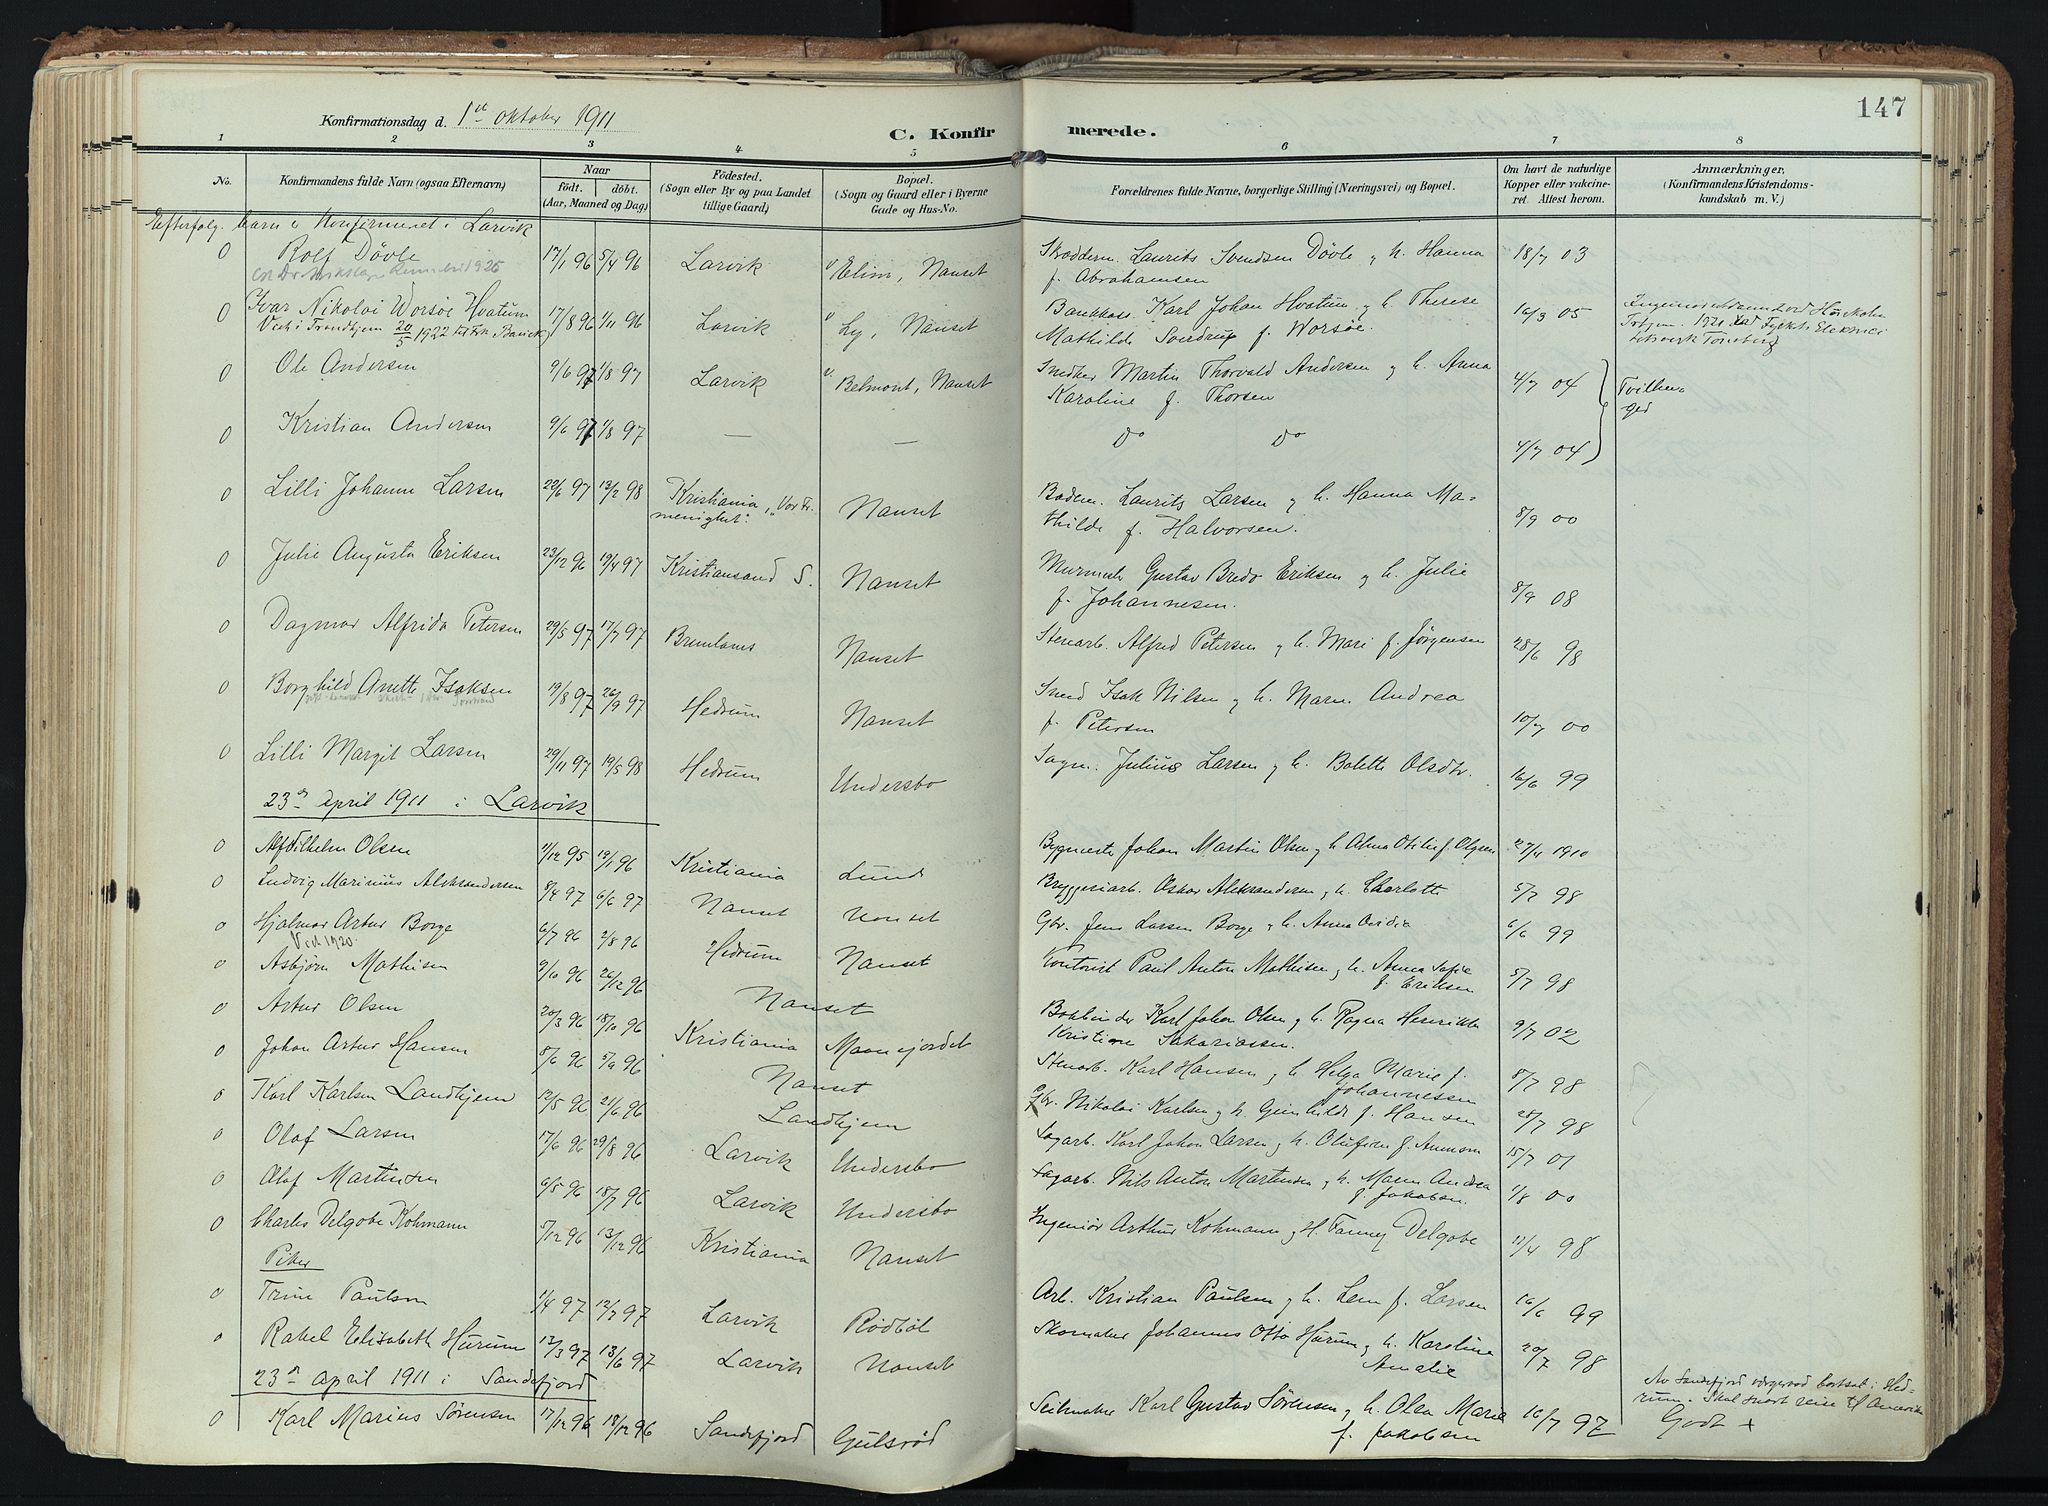 147
Konfirmationsdag d. 1st oktober 1911
C. Konfirmerede.
1 2 3 4 5 6 7 8
No. Konfirmandens fulde Navn (ogsaa Efternavn) Naar født. døbt. (Aar, Maaned og Dag) Fødested. (Sogn eller By og paa Landet tillige Gaard) Bopæl. (Sogn og Gaard eller i Byerne Gade og Hus-No. Forældrenes fulde Navne, borgerlige Stilling (Næringsvei) og Bopæl. Om havt de naturlige Kopper eller vakcineret. Attest herom. Anmærkninger, (Konfirmandens Kristendomskundskab m. V.)
Efterfølg. barn er Konfirmeret i Larvik
0 Rolf Døvle 17/1 96 5/4 96 Larvik Elim, Nanset Skredderm. Laurits Svendsen Døvle og h. Hanna f. Abrahamsen 18/7 03
0 Ivar Nikolai Worsøe Hvatum 17/8 96 1/11 96 Larvik Ly, Nanset Bankkass. Karl Johan Hvatum og h. Therese Mathilde Sverdrup f. Worsøe. 16/3 05
Viet i Trondhjem 20/5 1922
0 Ole Andersen 9/6 97 1/8 97 Larvik Belmont, Nanset Snedker Martin Thorvald Andersen og h. Anna Karoline f. Thorsen 4/7 04 Tvillinger
0 Kristian Andersen 9/6 97 1/8 97 — — do do 4/7 04
0 Lilli Johanne Larsen 22/6 97 13/2 98 Kristiania, "Vor Fr. menighet". Nanset Bødem. Laurits Larsen og h. Hanna Mathilde f. Halvorsen. 8/9 00
0 Julie Augusta Eriksen 23/12 96 19/4 97 Kristiansand S. Nanset Murmest. Gustav Bredo Eriksen og h. Julie f. Johannesen. 8/9 08
0 Dagmar Alfrida Petersen 29/5 97 17/7 97 Brunlanes Nanset Stenarb. Alfred Petersen og h. Mari f. Jørgensen 28/6 98
0 Borghild Anette Isaksen 19/8 97 26/9 97 Hedrum Nanset Smed Isak Nilsen og h. Maren Andrea f. Petersen 10/7 00
0 Lilli Margit Larsen 29/11 97 19/5 98 Hedrum Undersbo Sagm. Julius Larsen og h. Bolette Olsdtr. 16/6 99
23de april 1911 i Larvik
0 Alf Vilhelm Olsen 11/12 95 19/1 96 Kristiania Lund Bygmester Johan Martin Olsen og h. Alma Otilie f. Olsen 27/4 1910
0 Ludvig Marinius Aleksandersen 8/4 97 6/6 97 Nanset Nanset Bryggeriarb. Oskar Aleksandersen og h. Charlotte 5/7 98
0 Hjalmar Artur Borge 6/7 96 2/8 96 Hedrum Nanset Gbr. Jens Larsen Borge og h. Anna Ovidia 6/6 99
Viet 1920.
0 Asbjørn Mathisen 9/10 96 26/12 96 Nanset Kontorist Paul Anton Mathisen og h. Anna Sofie f. Eriksen 5/7 98
0 Artur Olsen 20/3 96 18/10 96 Kristiania Maanejordet Bokbinder Karl Johan Olsen og h. Ragna Henriktte Kristine Sakariassen. 9/7 02
0 Johan Artur Hansen 8/6 96 5/9 96 Nanset Stenarb. Karl Hansen og h. Helga Marie f. Johannessen 8/7 98
0 Karl Karlsen Landhjem 12/5 96 21/6 96 Landhjem Gbr. Nikolai Karlsen og h. Gunhilde f. Hansen 28/7 98
0 Olaf Larsen 17/6 96 29/8 96 Larvik Undersbo Sagarb. Karl Johan Larsen og h. Olufine f. Amundsen 15/7 01
0 Olaf Martinsen 6/5 96 18/7 96 Larvik Undersbo Sagarb. Nils Anton Martinsen og h. Maren Andrea f. Jakobsen. 1/8 00
0 Charles Delgobe Kohmann 5/12 96 13/12 96 Kristiania Nanset Ingeniør Arthur Kohmann og H. Fanny Delgobe 11/4 98
Piker
0 Trine Paulsen 1/4 97 12/7 97 Larvik Rødbøl Arb. Kristian Paulsen og h. Lene f. Larsen 16/6 99
0 Rakel Elisabeth Hurum 12/3 97 13/6 97 Larvik Nanset Skomaker Johannes Otto Hurum og h. Karoline Amalie 20/7 98
23de april 1911 i Sandefjord
0 Karl Marius Sørensen 17/12 96 18/12 96 Sandefjord Gulsrød Seilmaker Karl Gustav Sørensen og h. Olea Marie f. Jakobsen 16/7 97 Av Sandefjord vergeraad bortsat i Hedrum. Skal snart reise til Amerika Godt +